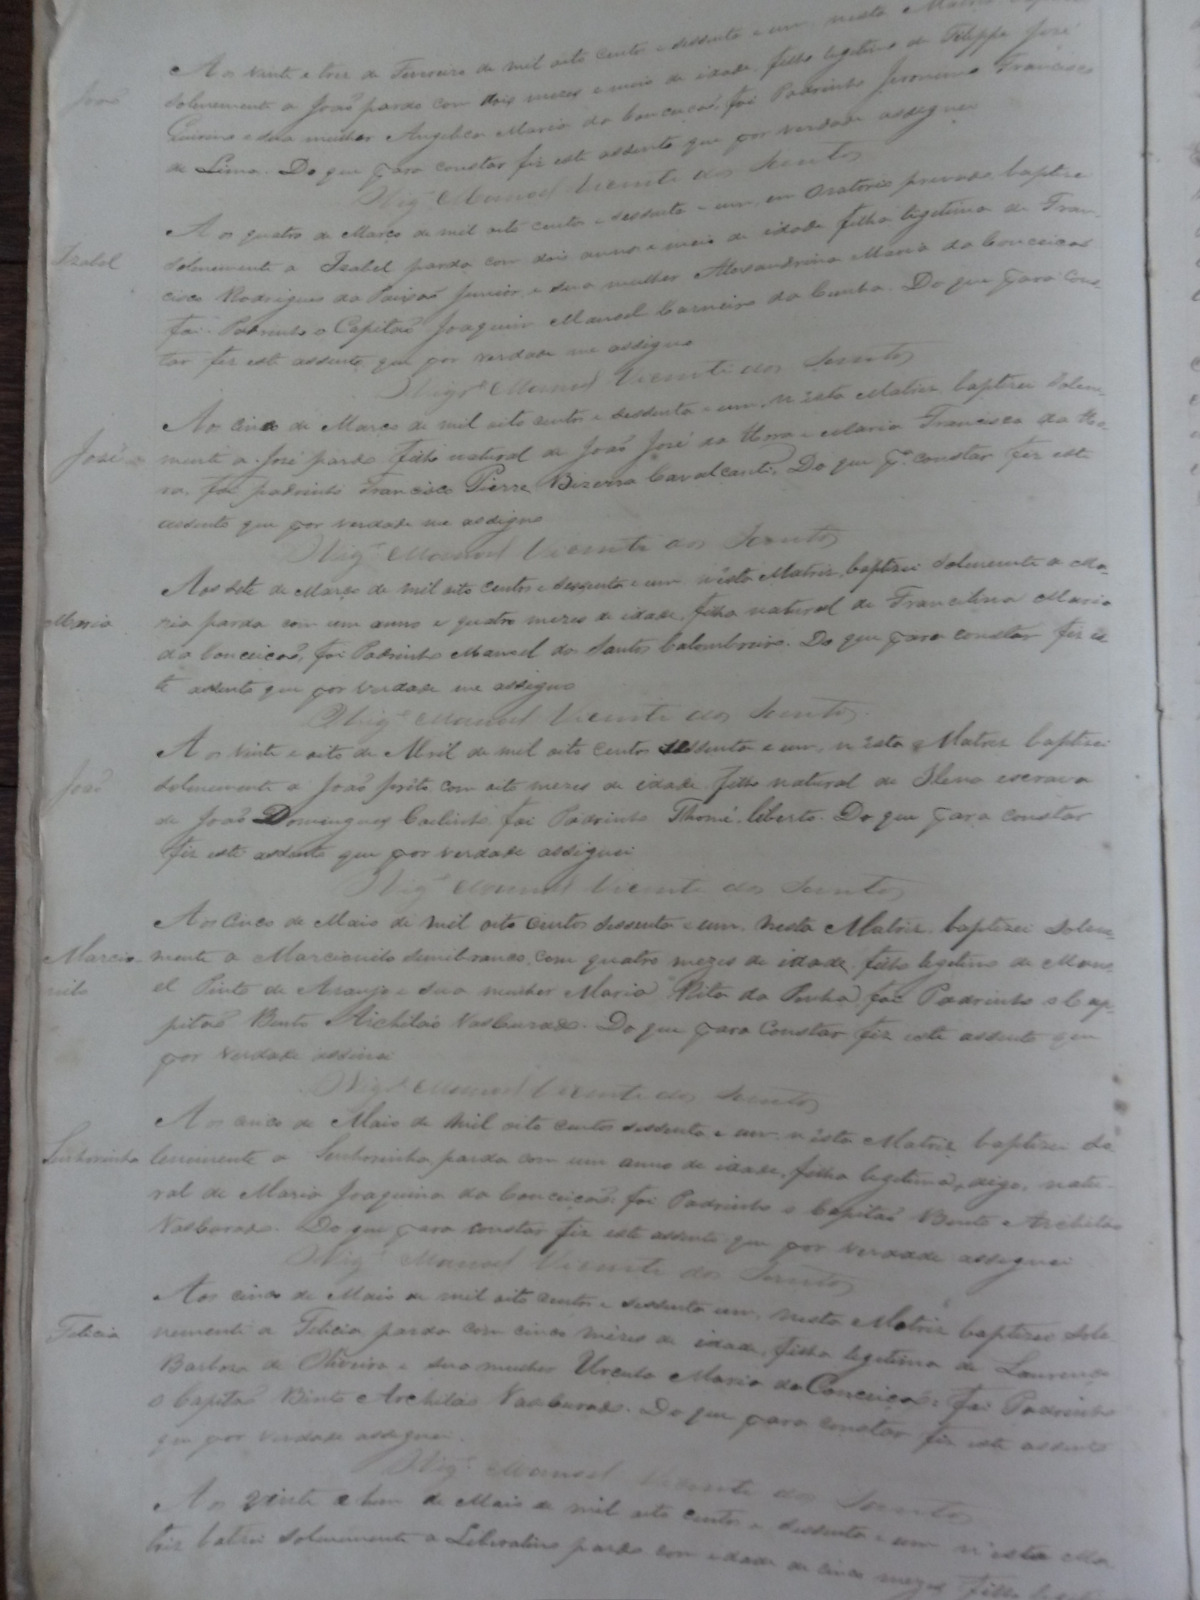 Aos vinte e tres de Fevereiro de mil oito centos e sessenta e um, nesta Matriz
João
solemnemente a João pardo com dois mezes e meio de idade, filho legitimo de Filippe José
e sua mulher Angelica Maria da Conceicaõ, foi Padrinho Jeronimo Francisco
de Lima. Do que para constar fiz este assento que por verdade assignei
Vigrº Manoel Vicente dos Santos
Aos quatro de Março de mil oito centos e sessenta e um, em Oratorio privado baptizei
Izabel
solemnemente a Izabel parda com dois annos e meio de idade filha legitima de Fran-
cisco Rodrigues da Paixaõ Junior, e sua mulher Alexandrina Maria da Conceicaõ
foi Padrinho o Capitaõ Joaquim Manoel Carneiro da Cunha. Do que para cons-
tar fiz este assento, que por verdade me assigno
Vigrº Manoel Vicente dos Santos
Aos cinco de Março de mil oito centos e sessenta e um, n'esta Matriz, baptizei solem-
José
mente a José pardo filho natural de João José da Hora e Maria Francisca da Ho-
ra, foi padrinho Francisco Pierre Bizerra Cavalcanti. Do que pª constar fiz este
assento que por verdade me assigno
Vigrº Manoel Vicente dos Santos
Aos sete de Março de mil oito centos e sessenta e um n'esta Matriz, baptizei solemnente a Ma-
Maria
ria parda com um anno e quatro mezes de idade, filha natural de Francelina Maria
da Conceicaõ, foi Padrinho Manoel dos Santos Calombreiro. Do que para constar fiz es-
te assento que por verdade me assigno
Vigrº Manoel Vicente dos Santos
Aos vinte e oito de Abril de mil oito centos sessenta e um, n'esta Matriz baptizei
João
solemnemente a João prêto com oito mezes de idade filho natural de Ilena escrava
de João Domingues Codinho foi Padrinho Thomé, liberto. Do que para constar
fiz este assento que por verdade assignei
Vigrº Manoel Vicente dos Santos
Aos cinco de Maio de mil oito centos sessenta e um, nesta Matriz, baptizei solem-
Marcio-
nilo
mente a Marcionilo semibranco, com quatro mezes de idade, filho legitimo de Mano-
el Pinto de Araujo e sua mulher Maria Rita da Penha, foi Padrinho o Cap-
pitaõ Bento Archiláo Vasburado. Do que para constar fiz este assento que
por verdade assinei
Vigrº Manoel Vicente dos Santos
Aos cinco de Maio de mil oito centos sessenta e um n'esta Matriz baptizei so-
Senhorinha
lemnemente a Senhorinha, parda com um anno de idade, filha legitima, digo, natu-
ral de Maria Joaquina da Conceicaõ: foi Padrinho o Capitaõ Bento Archiláo
Vasburado. Do que para constar fiz este assento que por verdade assignei
Vigrº Manoel Vicente dos Santos
Aos cinco de Maio de mil oito centos e sessenta um, nesta Matriz baptizei sole-
Felicia
nemente a Felicia parda com cinco mêzes de idade, filha legitima de Laurenço
Barboza de Oliveira e sua mulher Urcula Maria da Conceicaõ: foi Padrinho
o Capitaõ Bento Archiláo Vasburado. Do que para constar fiz este assento
que por verdade assignei
Vigrº Manoel Vicente dos Santos
Aos vinte e hum de Maio de mil oito centos e sessenta e um n'esta Ma-
triz batizei solemnemente a Liberatino pardo com idade de cinco mezes filho